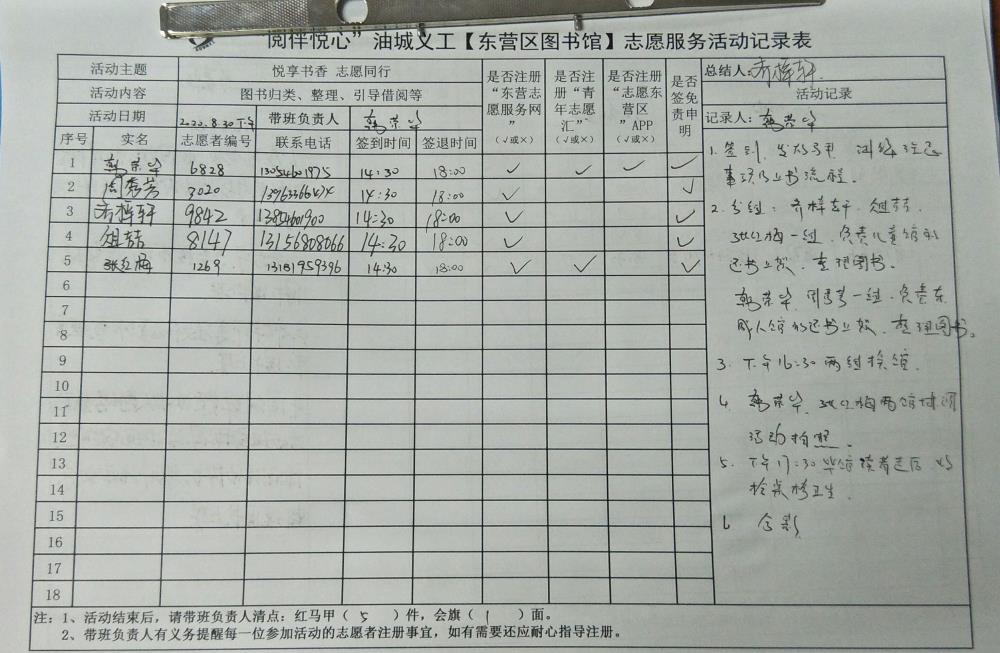 阅伴悦心”油城义工【东营区图书馆】志愿服务活动记录表
活动主题 悦享书香 志愿同行
活动内容 图书归类、整理、引导借阅等
活动日期 2020.8.30下午 带班负责人 韩荣华
是否注册“东营志愿服务网” (√或×)
是否注册“青年志愿汇” (√或×)
是否注册“志愿东营区”APP (√或×)
是否签免责申明
序号 实名 志愿者编号 联系电话 签到时间 签退时间
1 韩荣华 6828 13054601975 14:30 18:00 √ √ √ √
2 周秀芳 3020 14:30 18:00 √ √
3 齐梓轩 9842 13854601900 14:30 18:00 √ √
4 8147 13156808066 14:30 18:00 √ √
5 张红梅 1269 13181959396 14:30 18:00 √ √ √
6
7
8
9
10
11
12
13
14
15
16
17
18
总结人:齐梓轩
活动记录
记录人:韩荣华
1.签到、发放马甲 训练注意
事项及上书流程.
2.分组:齐梓轩、
张红梅一组,负责儿童馆的
还书上架、整理图书.
韩荣华、周秀芳一组,负责东
成人馆的还书上架、整理图书。
3.下午16:30两组换馆.
4.韩荣华、张红梅两馆
活动拍照.
5.下午17:30毕馆读者走后
卫生.
6 合影
注:1、活动结束后,请带班负责人清点:红马甲(5)件,会旗(1)面。
2、带班负责人有义务提醒每一位参加活动的志愿者注册事宜,如有需要还应耐心指导注册。